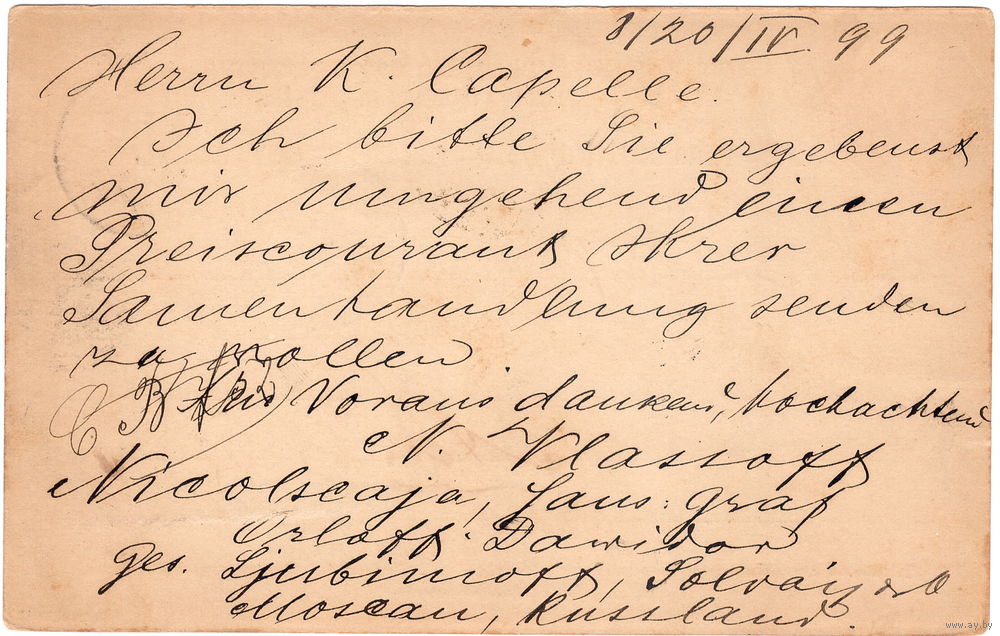 8/20/IV. 99
Herrn K. Capelle.
Ich bitte Sie ergebenst
mir umgehend einen
Preiscourant Ihrer
Samenhandlung senden
zu wollen
Im Voraus dankend, hochachtend
N. Wlassoff
Nicolscaja, Haus: Graf
Orloff. Dawidov
Ges. Ljubimoff, Solvay
Moscau, Russland.
www.ay.by